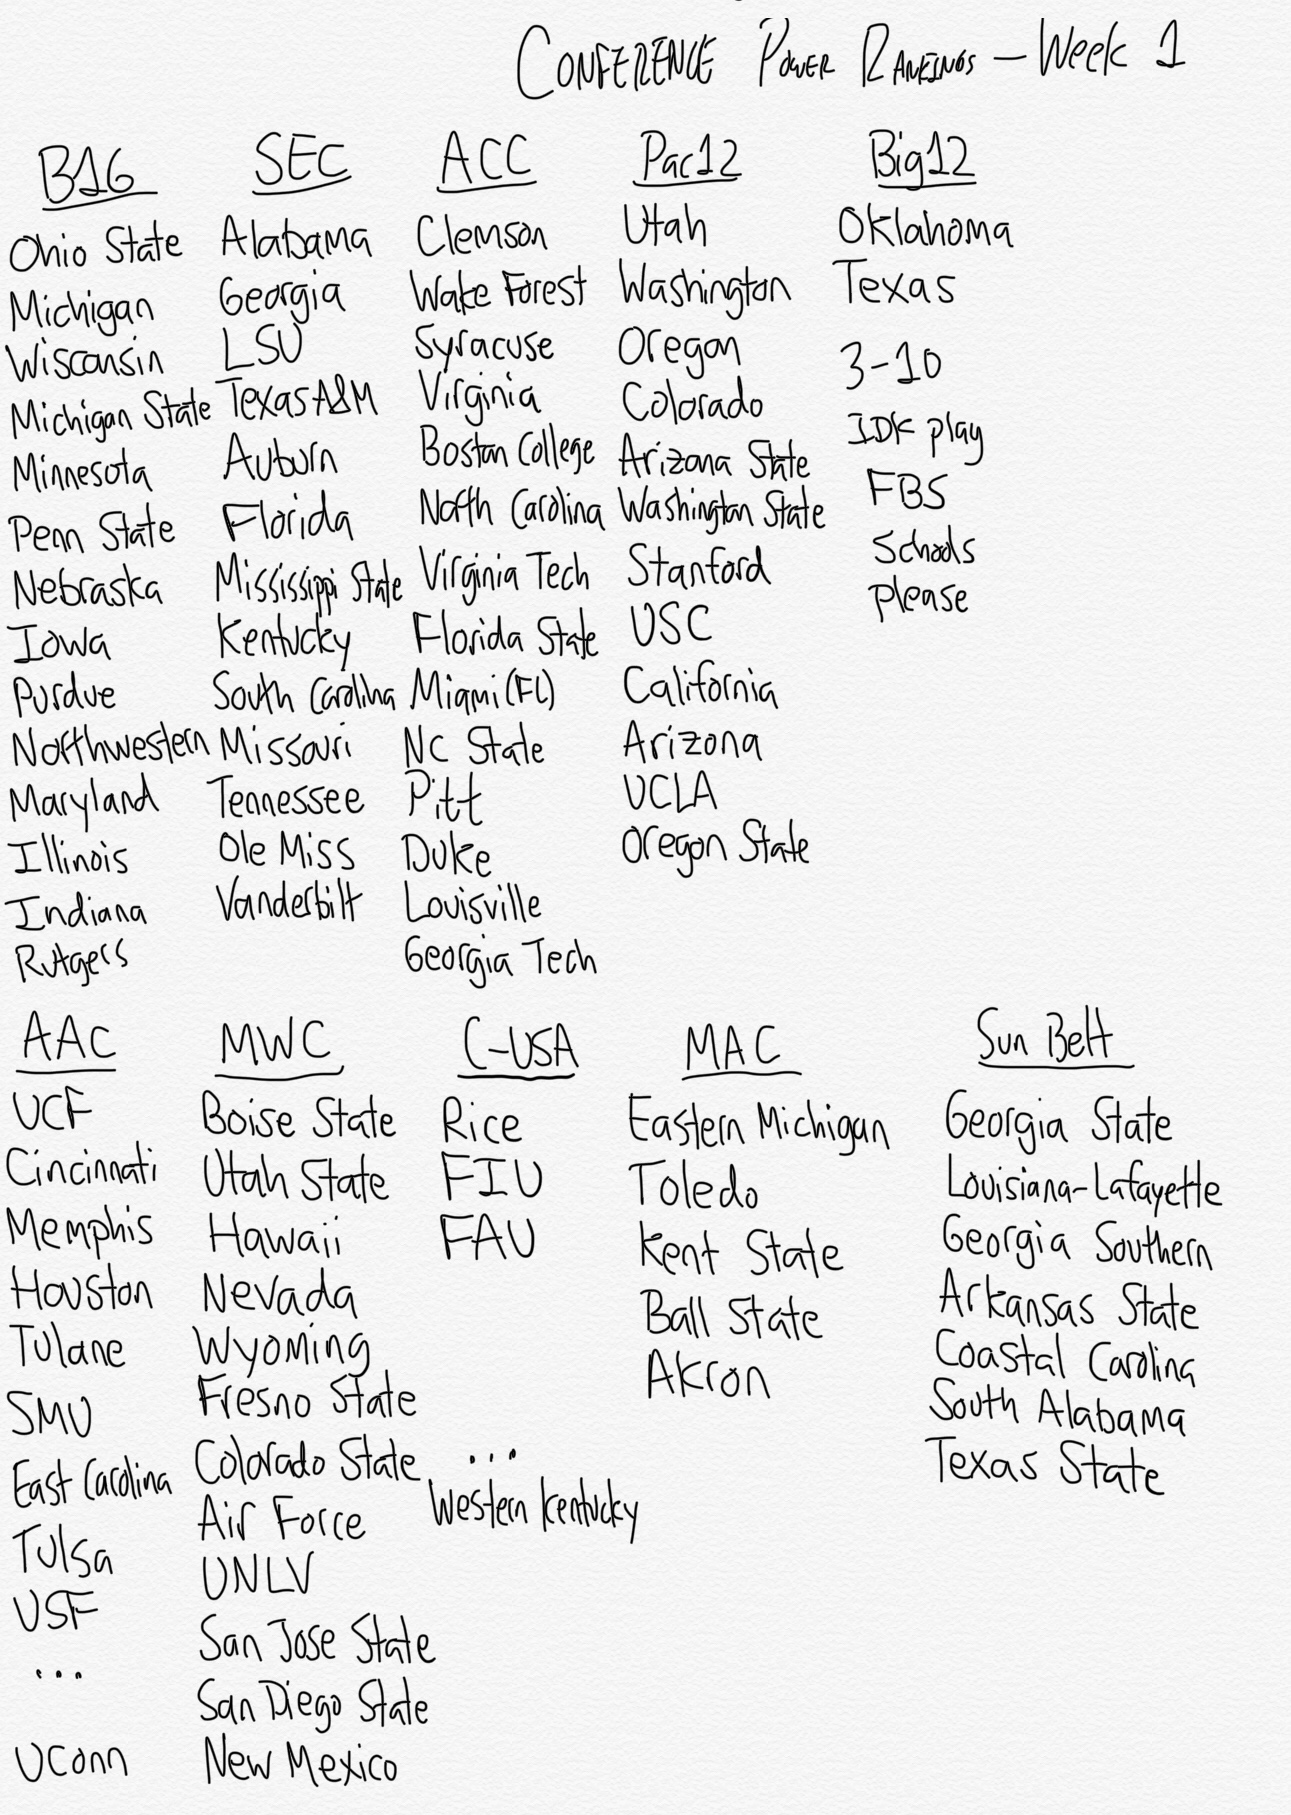 Conference Power Rankings – Week 1
B1G
Ohio State
Michigan
Wisconsin
Michigan State
Minnesota
Penn State
Nebraska
Iowa
Purdue
Northwestern
Maryland
Illinois
Indiana
Rutgers
SEC
Alabama
Georgia
LSU
Texas A&M
Auburn
Florida
Mississippi State
Kentucky
South Carolina
Missouri
Tennessee
Ole Miss
Vanderbilt
ACC
Clemson
Wake Forest
Syracuse
Virginia
Boston College
North Carolina
Virginia Tech
Florida State
Miami (FL)
NC State
Pitt
Duke
Louisville
Georgia Tech
Pac12
Utah
Washington
Oregon
Colorado
Arizona State
Washington State
Stanford
USC
California
Arizona
UCLA
Oregon State
Big12
Oklahoma
Texas
3-10
IDK play
FBS
Schools
please
AAC
UCF
Cincinnati
Memphis
Houston
Tulane
SMU
East Carolina
Tulsa
USF
...
UConn
MWC
Boise State
Utah State
Hawaii
Nevada
Wyoming
Fresno State
Colorado State
Air Force
UNLV
San Jose State
San Diego State
New Mexico
C-USA
Rice
FIU
FAU
...
Western Kentucky
MAC
Eastern Michigan
Toledo
Kent State
Ball State
Akron
Sun Belt
Georgia State
Louisiana-Lafayette
Georgia Southern
Arkansas State
Coastal Carolina
South Alabama
Texas State